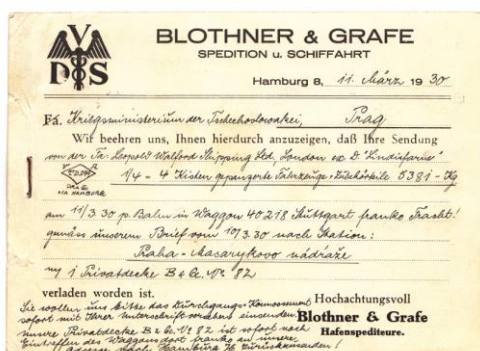 V
D S
BLOTHNER & GRAFE
SPEDITION u. SCHIFFAHRT
Hamburg 8, 11. März 1930
Fa. Kriegsministerium der Tschechoslowakei, Prag
Wir beehren uns, Ihnen hierdurch anzuzeigen, daß Ihre Sendung
von der Fa. Leopold Walford Shipping Ltd, London ex D. "Lindisfarne"
PRAG
VIA HAMBURG
1/4 - 4 Kisten gepanzerte Fahrzeuge + Zubehörteile 5381 - Kg
am 11/3.30 p. Bahn in Waggon 40218 Stuttgart franko Fracht!
gemäss unserem Brief vom 10/3.30 nach Station:
Praha - Masarykovo nádraže
m/ 1 Privatdecke B & G. No 82
verladen worden ist.
Hochachtungsvoll
Sie wollen uns bitte das Durchgangs-Konnossement
sofort mit Ihrer Unterschrift versehen einsenden.
Blothner & Grafe
Hafenspediteure.
Unsere Privatdecke B & G. No 82 ist sofort nach
Eintreffen des Waggons dort franko an unsere
Adresse nach Hamburg zurückzusenden!